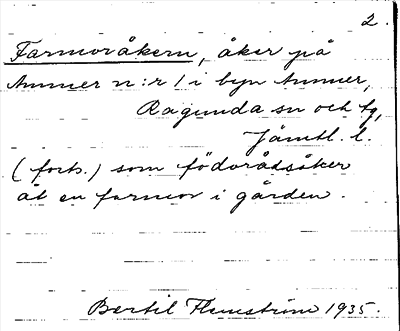 2.
Farmoråkern, åker på
Ammer nr:r 1 i byn Ammer,
Ragunda sn och tg,
Jämtl. l.
(forts.) som födorådsåker
åt en farmor i gården.
Bertil Flemström 1935.